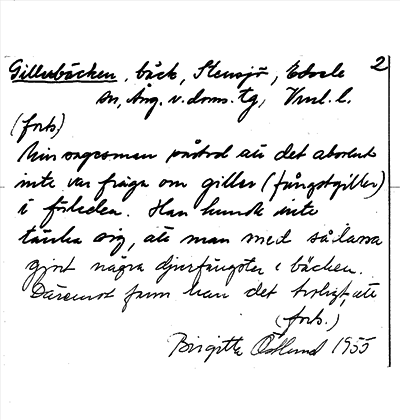 Gillerbäcken, bäck, Stensjö, Edsele 2
sn, Ång. v. doms. tg, Vnl. l.
(forts)
Min sagesman påstod att det absolut
inte var fråga om giller (fångstgiller)
i förleden. Han kunde inte
tänka sig, att man med sådana
gjort några djurfångster i bäcken.
Däremot fann han det troligt, att
(forts.)
Birgitta Östlund 1955